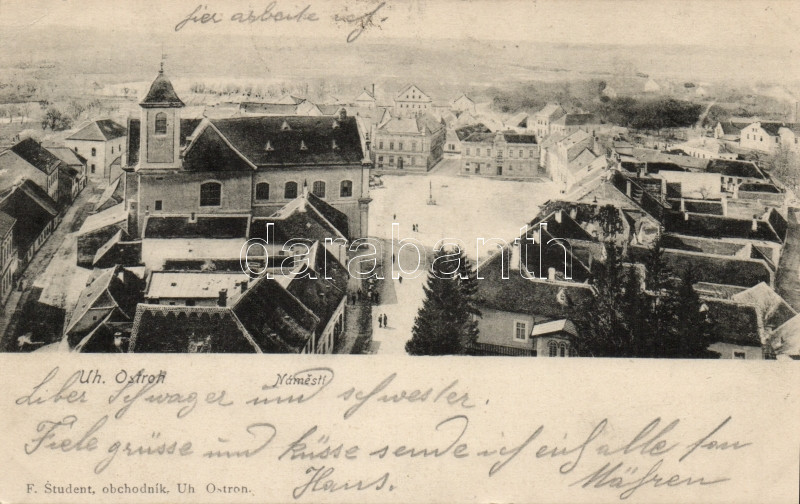 hier arbeite ich
darabanth
Uh. Ostroh
Náměstí
Liber Schwager und schwester.
Fiele grüsse und küsse sende ich eich alle fon
Hans. Mähren
F. Student, obchodník, Uh Ostron.